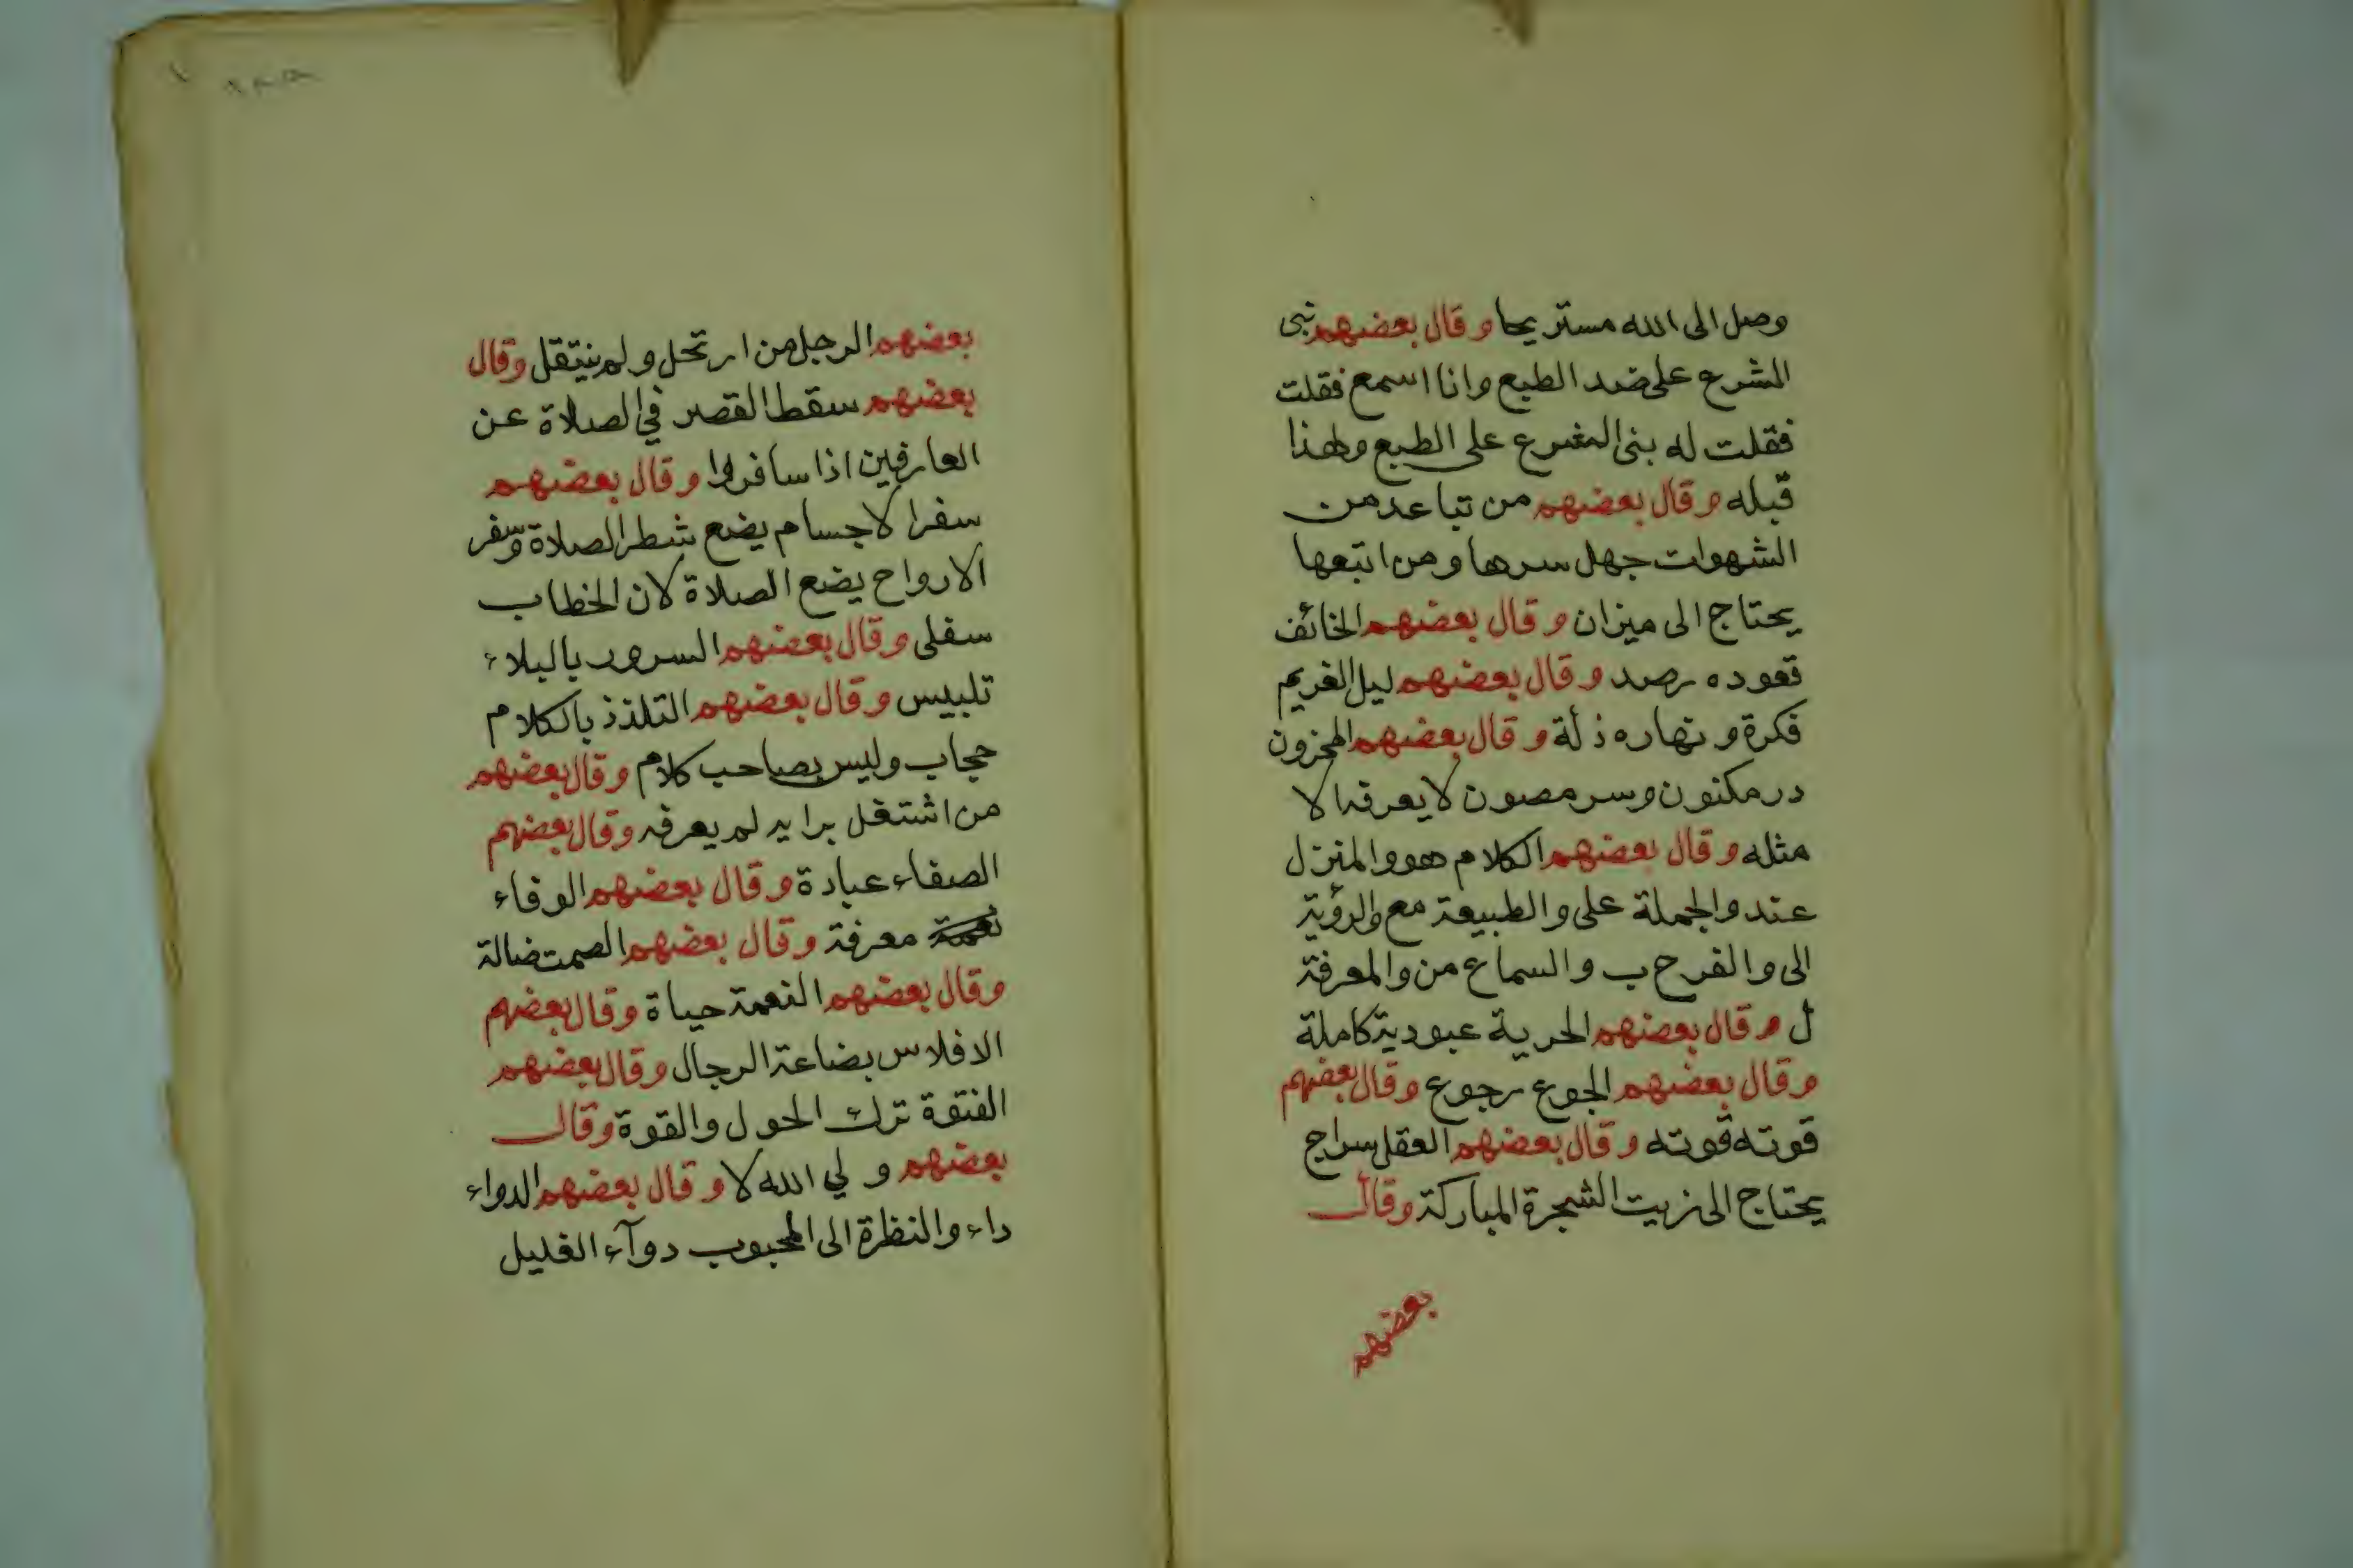 وصل الى الله مستريحا وقال بعضهم نبى
الشرع على ضد الطبع وانا اسمع فقلت
فقلت له بنى الشرع على الطبع ولهذا
قبله وقال بعضهم من تباعد من
الشهوات جهل سرها ومن اتبعها
يحتاج الى ميزان وقال بعضهم الخائف
قعوده رصد وقال بعضهم ليل الغريم
فكرة ونهاره ذلة وقال بعضهم المحزون
در مكنون وسر مصون لا يعرفه الا
مثله وقال بعضهم الكلام هو والمنزل
عند والجملة على والطبيعة مع والرؤية
الى والفرح ب والسماع من والمعرفة
ل وقال بعضهم الحرية عبودية كاملة
وقال بعضهم الجوع رجوع وقال بعضهم
قوته قوته وقال بعضهم العقل سراج
يحتاج الى زيت الشجرة المباركة وقال
بعضهم
بعضهم الرجل من ارتحل ولم ينتقل وقال
بعضهم سقط القصر في الصلاة عن
العارفين اذا سافروا وقال بعضهم
سفر الاجسام يضع شطر الصلاة وسفر
الارواح يضع الصلاة لان الخطاب
سفلى وقال بعضهم السرور بالبلاء
تلبيس وقال بعضهم التلذذ بالكلام
حجاب وليس بصاحب كلام وقال بعضهم
من اشتغل برايه لم يعرفه وقال بعضهم
الصفاء عبادة وقال بعضهم الوفاء
معرفة وقال بعضهم الصمت ضالة
وقال بعضهم النعمة حياة وقال بعضهم
الافلاس بضاعة الرجال وقال بعضهم
الفتوة ترك الحول والقوة وقال
بعضهم ولي الله لا وقال بعضهم الدواء
داء والنظرة الى المحبوب دوآء الغليل